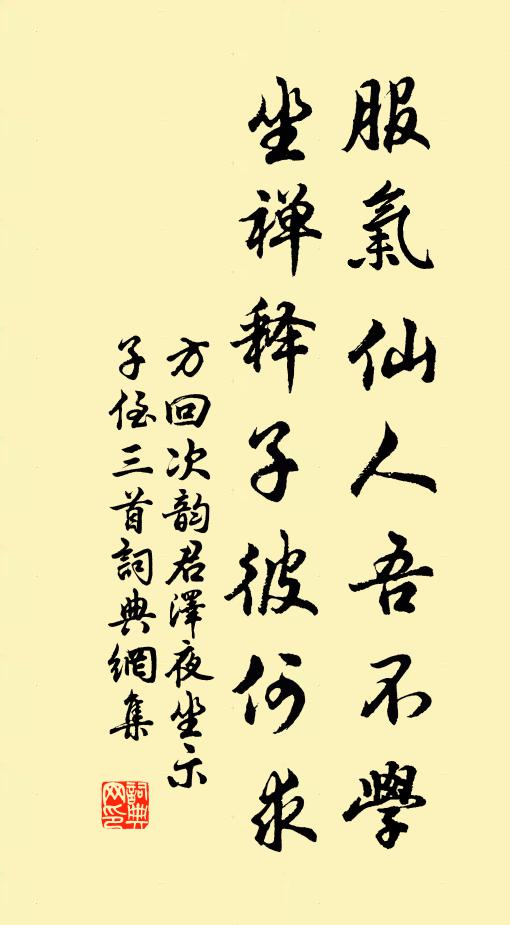 服氣仙人吾不學
坐禅释子彼何求
方回次韵君澤夜坐示
子侄三首詞典網集
詞典
网印